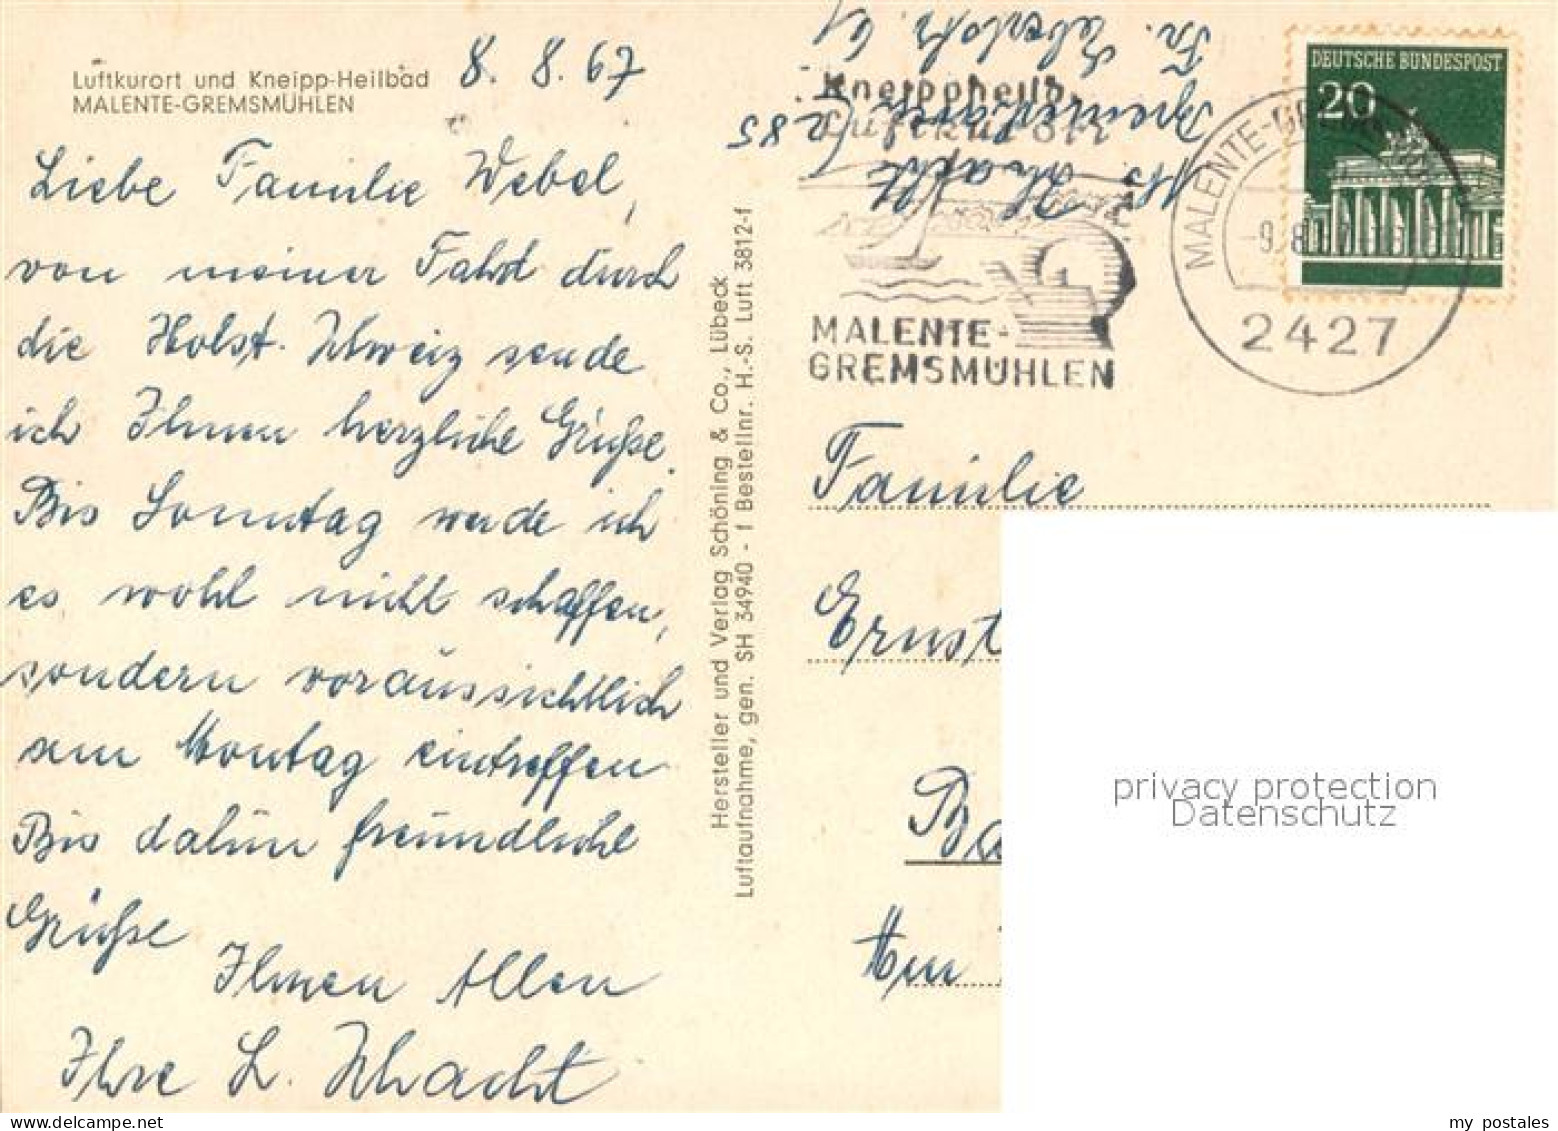 Luftkurort und Kneipp-Heilbad
MALENTE-GREMSMÜHLEN
8. 8. 67
Liebe Familie Webel,
von meiner Fahrt durch
die Holst. Schweiz sende
ich Ihnen herzliche Grüße.
Bis Sonntag werde ich
es wohl nicht schaffen,
sondern voraussichtlich
am Montag eintreffen
Bis dahin freundliche
Grüße
Ihnen Allen
Ihre L. Schacht
Hersteller und Verlag Schöning & Co., Lübeck
Luftaufnahme, gen. SH 34940 - f Bestellnr. H.-S. Luft 3812-f
Abs. Schacht
285 Bremerhaven
Fr. Ebertstr. 61
Kneippheilb.
Luftkurort
MALENTE-
GREMSMÜHLEN
DEUTSCHE BUNDESPOST
20
MALENTE-GREMSMÜHLEN
-9. 8.
2427
Familie
Ernst
privacy protection
Datenschutz
my postales